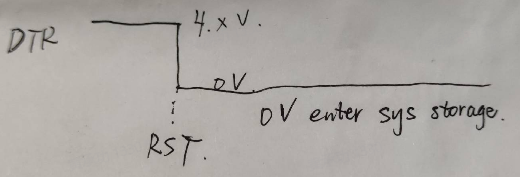 4.x V.
DTR
0V
0V enter sys storage.
RST.